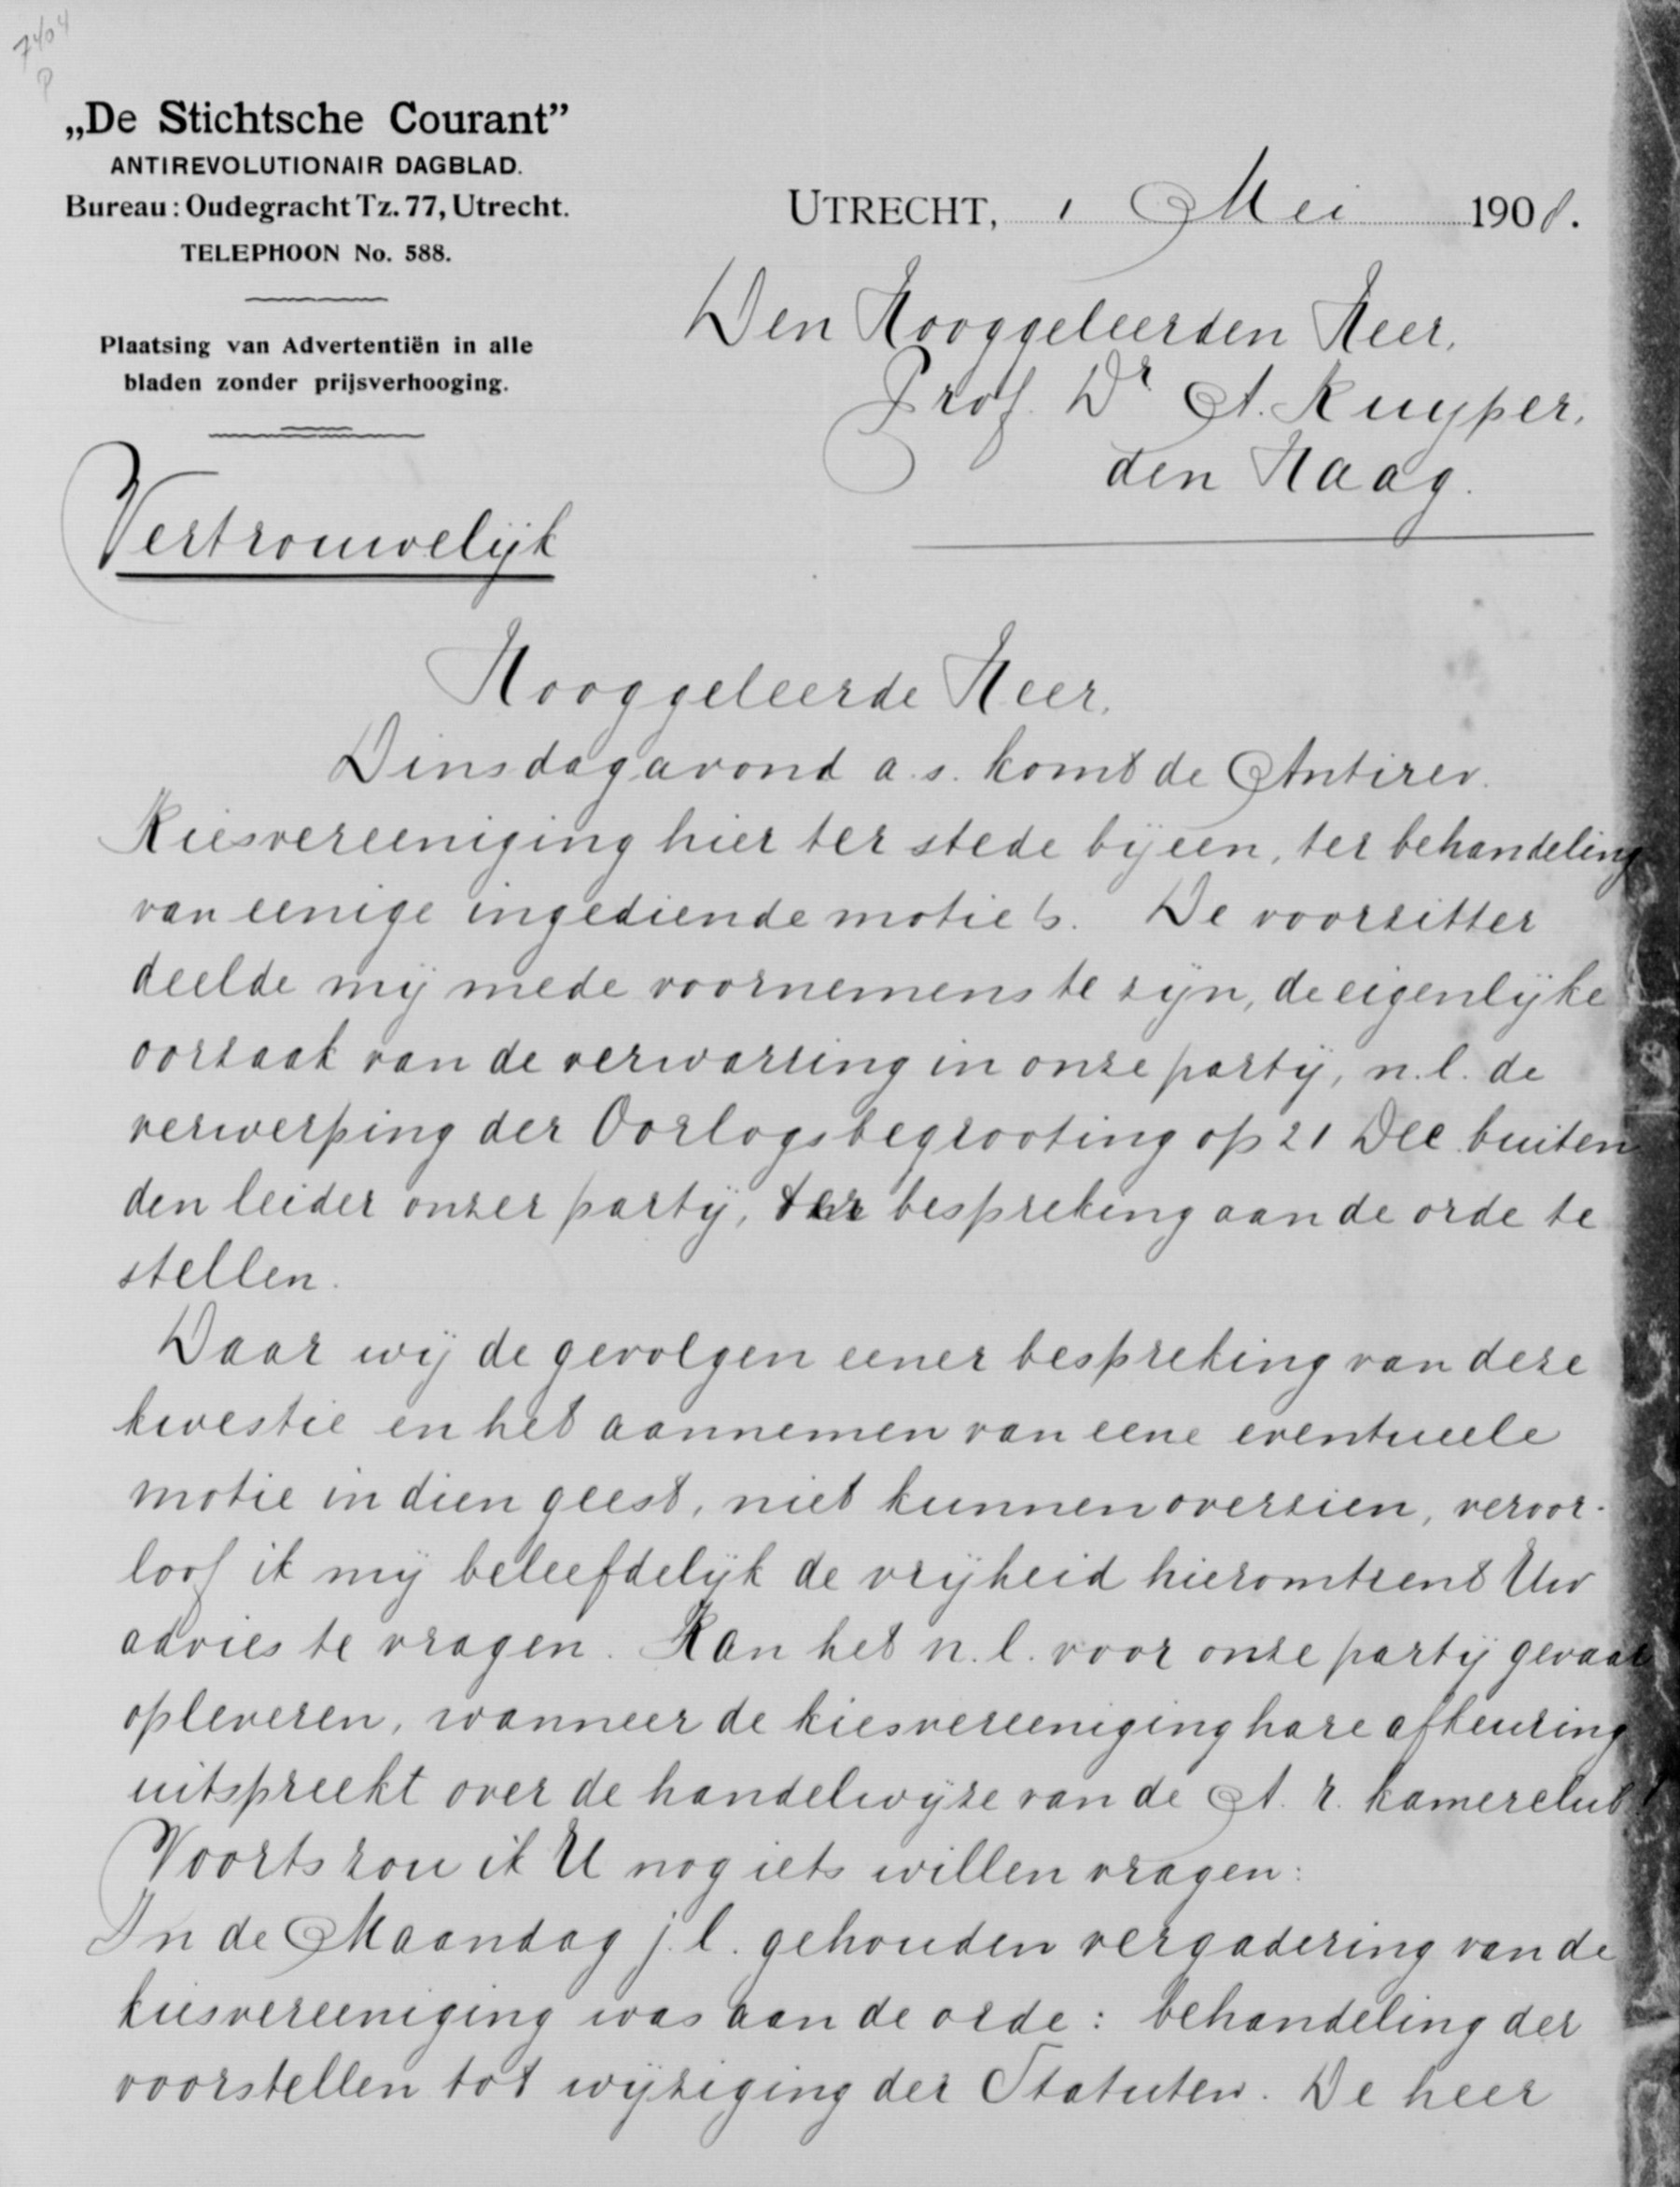 7404
P
„De Stichtsche Courant”
ANTIREVOLUTIONAIR DAGBLAD.
Bureau: Oudegracht Tz. 77, Utrecht.
TELEPHOON No. 588.
Plaatsing van Advertentiën in alle
bladen zonder prijsverhooging.
UTRECHT, 1 Mei 1908.
Den Hooggeleerden Heer,
Prof. Dr A. Kuyper,
den Haag.
Vertrouwelijk
Hooggeleerde Heer,
Dinsdagavond a.s. komt de Antirev.
Kiesvereeniging hier ter stede bijeen, ter behandeling
van eenige ingediende motie's. De voorzitter
deelde mij mede voornemens te zijn, de eigenlijke
oorzaak van de verwarring in onze partij, n.l. de
verwerping der Oorlogsbegrooting op 21 Dec. buiten
den leider onzer partij, ter bespreking aan de orde te
stellen.
Daar wij de gevolgen eener bespreking van deze
kwestie en het aannemen van eene eventueele
motie in dien geest, niet kunnen overzien, veroor-
loof ik mij beleefdelijk de vrijheid hieromtrent Uw
advies te vragen. Kan het n.l. voor onze partij gevaar
opleveren, wanneer de kiesvereeniging hare afkeuring
uitspreekt over de handelwijze van de A. r. kamerclub?
Voorts zou ik U nog iets willen vragen:
In de Maandag j.l. gehouden vergadering van de
kiesvereeniging was aan de orde: behandeling der
voorstellen tot wijziging der Statuten. De heer